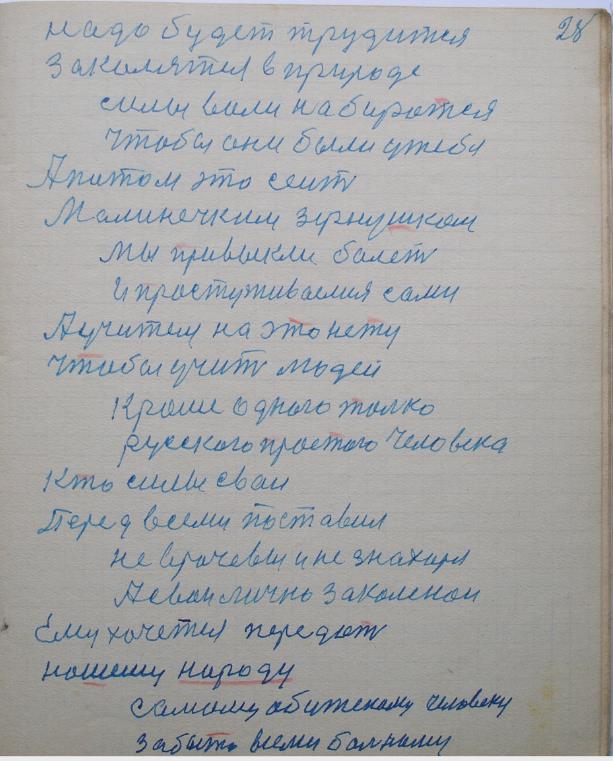 28
надо будет трудится
Закалятся в природе
силы воли набиратся
Чтобы они были утебя
Апотом это сеит
Малинечким зернушком
Мы привыкли болет
И простуживаемся сами
Аучителя на это нету
Чтобы учит людей
Кроме одного толко
русского простого Человека
Кто силы свои
Перед всеми поставил
не врачевы и не знахоря
Асвои лично Закаленои
Ему хочется передат
нашему народу
самому обижскому человеку
Забыто всеми болному